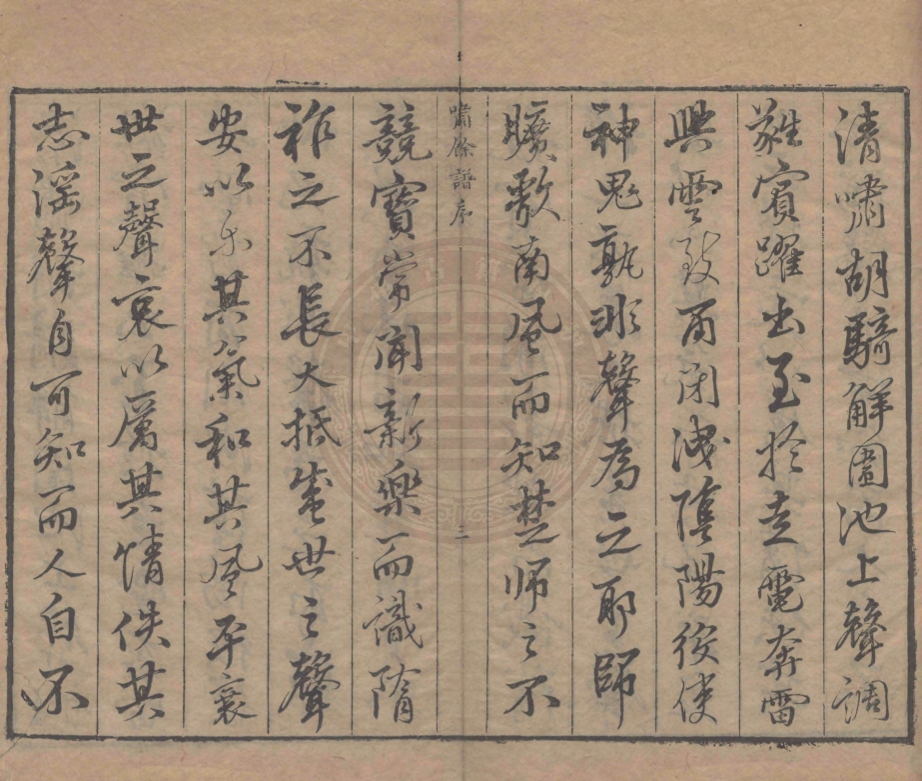 清嘯胡騎解圍池上聲調
蕤賓躍出至於走電奔雷
興雲致雨閉洩陰陽役使
神鬼孰非聲為之耶師
曠歌南風而知楚師之不
嘯餘譜序
二
競寶常聞新樂而識隋
祚之不長大抵盛世之聲
安以樂其氣和其風平衰
世之聲哀以厲其情佚其
志滛聲自可知而人自不